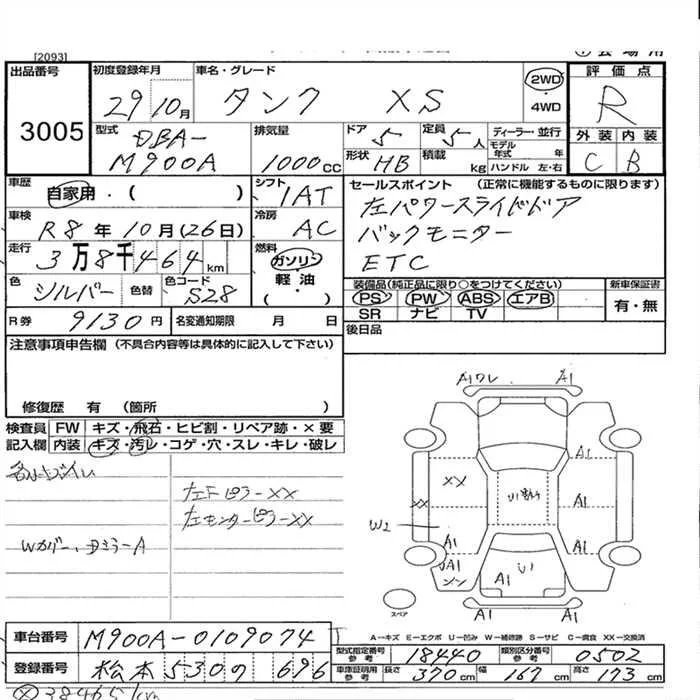 [2093]
出品番号
3005
初度登録年月
29 10月
車名・グレード
タンク XS
2WD
・
4WD
評価点
R
外装 内装
C B
型式
DBA-
M900A
排気量
1000cc
ドア
5
定員
5人
ディーラー・並行
モデル
年式 年
形状
HB
積載
kg
ハンドル 左・右
車歴
自家用・( )
シフト
IAT
セールスポイント (正常に機能するものに限ります)
左パワースライドドア
バックモニター
ETC
車検
R8年10月(26日)
冷房
AC
走行
3万8千464km
燃料
ガソリン
軽・油
( ・ )
色
シルバー
色替
色コード
S28
装備品(純正品に限り○をつけてください)
PS PW ABS エアB
SR ナビ TV
新車保証書
有・無
R券
9130円
名変通知期限 月 日
後日品
注意事項申告欄 (不具合内容等は具体的に記入して下さい)
修復歴 有 (箇所 )
検査員
記入欄
FW キズ・飛石・ヒビ割・リペア跡・×要
内装 キズ・汚レ・コゲ・穴・スレ・キレ・破レ
左Fピラー××
左センターピラー××
A1ワレ A1
××
××
W2
A1
A1
A1
A1
A1
A1
A1
A1
A1
スペア
A―キズ E―エクボ U―凹み W―補修跡 S―サビ C―腐食 XX―交換済
車台番号
M900A-0109074
登録番号
松本 530 の 696
型式指定番号
参考
18440
類別区分番号
参考
0502
車庫証明用
参考
長さ
370cm
幅
167cm
高さ
173cm
38465km